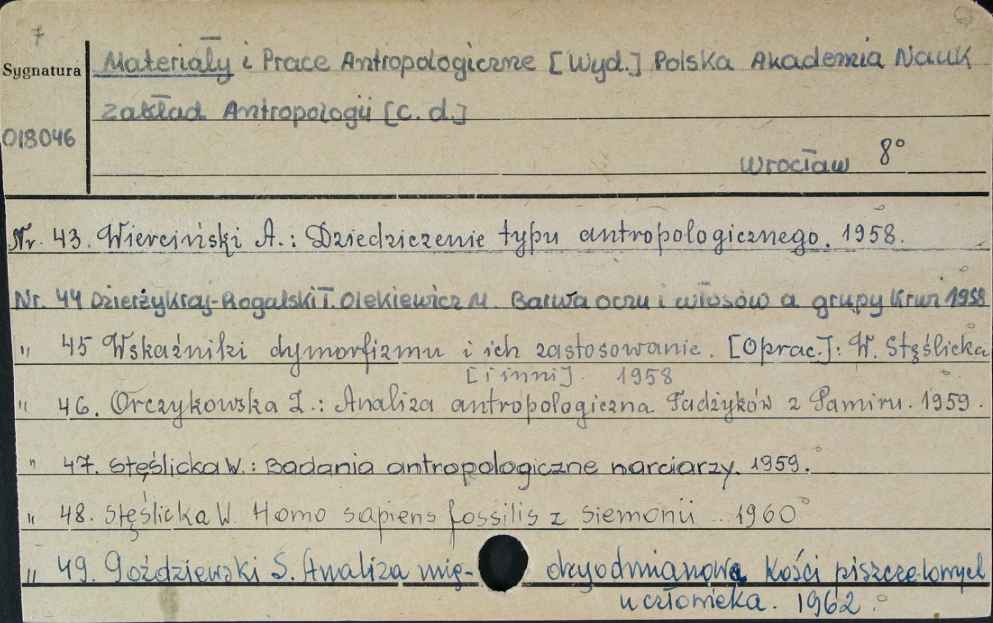 7
Sygnatura
018046
Materiały i Prace Antropologiczne [Wyd.] Polska Akademia Nauk
Zakład Antropologii [c. d.]
Wrocław 8°
Nr. 43. Wierciński A.: Dziedziczenie typu antropologicznego. 1958.
Nr. 44 Dzierżykraj-Rogalski T. Olekiewicz M. Barwa oczu i włosów a grupy krwi 1958
" 45 Wskaźniki dymorfizmu i ich zastosowanie. [Oprac.]: W. Stęślicka
[i inni]. 1958
" 46. Orczykowska Z.: Analiza antropologiczna Tadżyków z Pamiru. 1959.
" 47. Stęślicka W.: Badania antropologiczne narciarzy. 1959.
" 48. Stęślicka W. Homo sapiens fossilis z Siemonii .. 1960
" 49. Goździewski S. Analiza mię- dzyodmianowa kości piszczelowych
u człowieka. 1962.